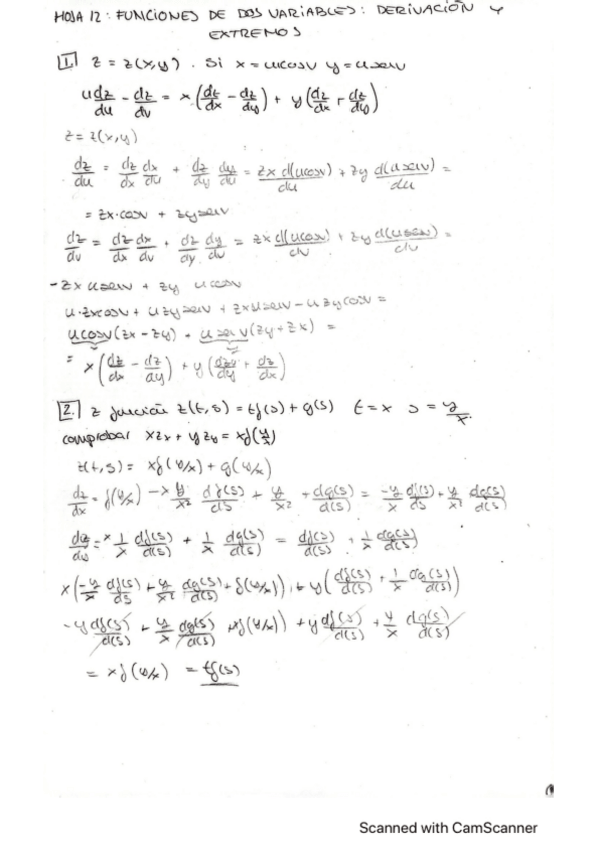 HOJA 12: FUNCIONES DE DOS VARIABLES: DERIVACIÓN Y
EXTREMOS
1. z = z(x,y). Si x = u cosv y = u senv
u dz/du - dz/dv = x(dz/dx - dz/dy) + y(dz/dx + dz/dy)
z = z(x,y)
dz/du = dz/dx dx/du + dz/dy dy/du = zx d(ucosv)/du + zy d(usenv)/du =
= zx·cosv + zy senv
dz/dv = dz/dx dx/dv + dz/dy dy/dv = zx d(ucosv)/dv + zy d(usenv)/dv =
-zx u senv + zy u cosv
u·zx cosv + u zy senv + zx u senv - u zy cosv =
u cosv(zx - zy) + u senv(zy + zx) =
= x(dz/dx - dz/dy) + y(dz/dy + dz/dx)
2. z función z(t,s) = tf(s) + g(s) t = x s = y/x
comprobar xzx + yzy = xf(y/x)
z(t,s) = xf(y/x) + g(y/x)
dz/dx = f(y/x) - x y/x² df(s)/ds + y/x² + dg(s)/d(s) = -y/x df(s)/ds + y/x² dg(s)/d(s)
dz/dy = x 1/x df(s)/d(s) + 1/x dg(s)/d(s) = df(s)/d(s) + 1/x dg(s)/d(s)
x(-y/x df(s)/ds + y/x² dg(s)/d(s) + f(y/x)) + y(df(s)/d(s) + 1/x dg(s)/d(s))
-y df(s)/d(s) + y/x dg(s)/d(s) + xf(y/x)) + y df(s)/d(s) + y/x dg(s)/d(s)
= xf(y/x) = tf(s)
Scanned with CamScanner